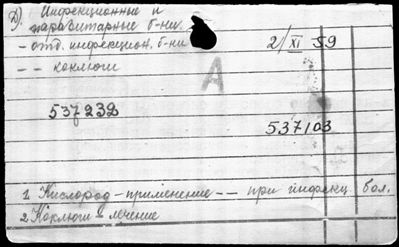 Д). Инфекционные и
паразитарные б-ни
- отд. инфекцион. б-ни 2/XI 59
- - коклюш
А
537232
537103
1. Кислород - применение - - при инфекц бол.
2. Коклюш - лечение